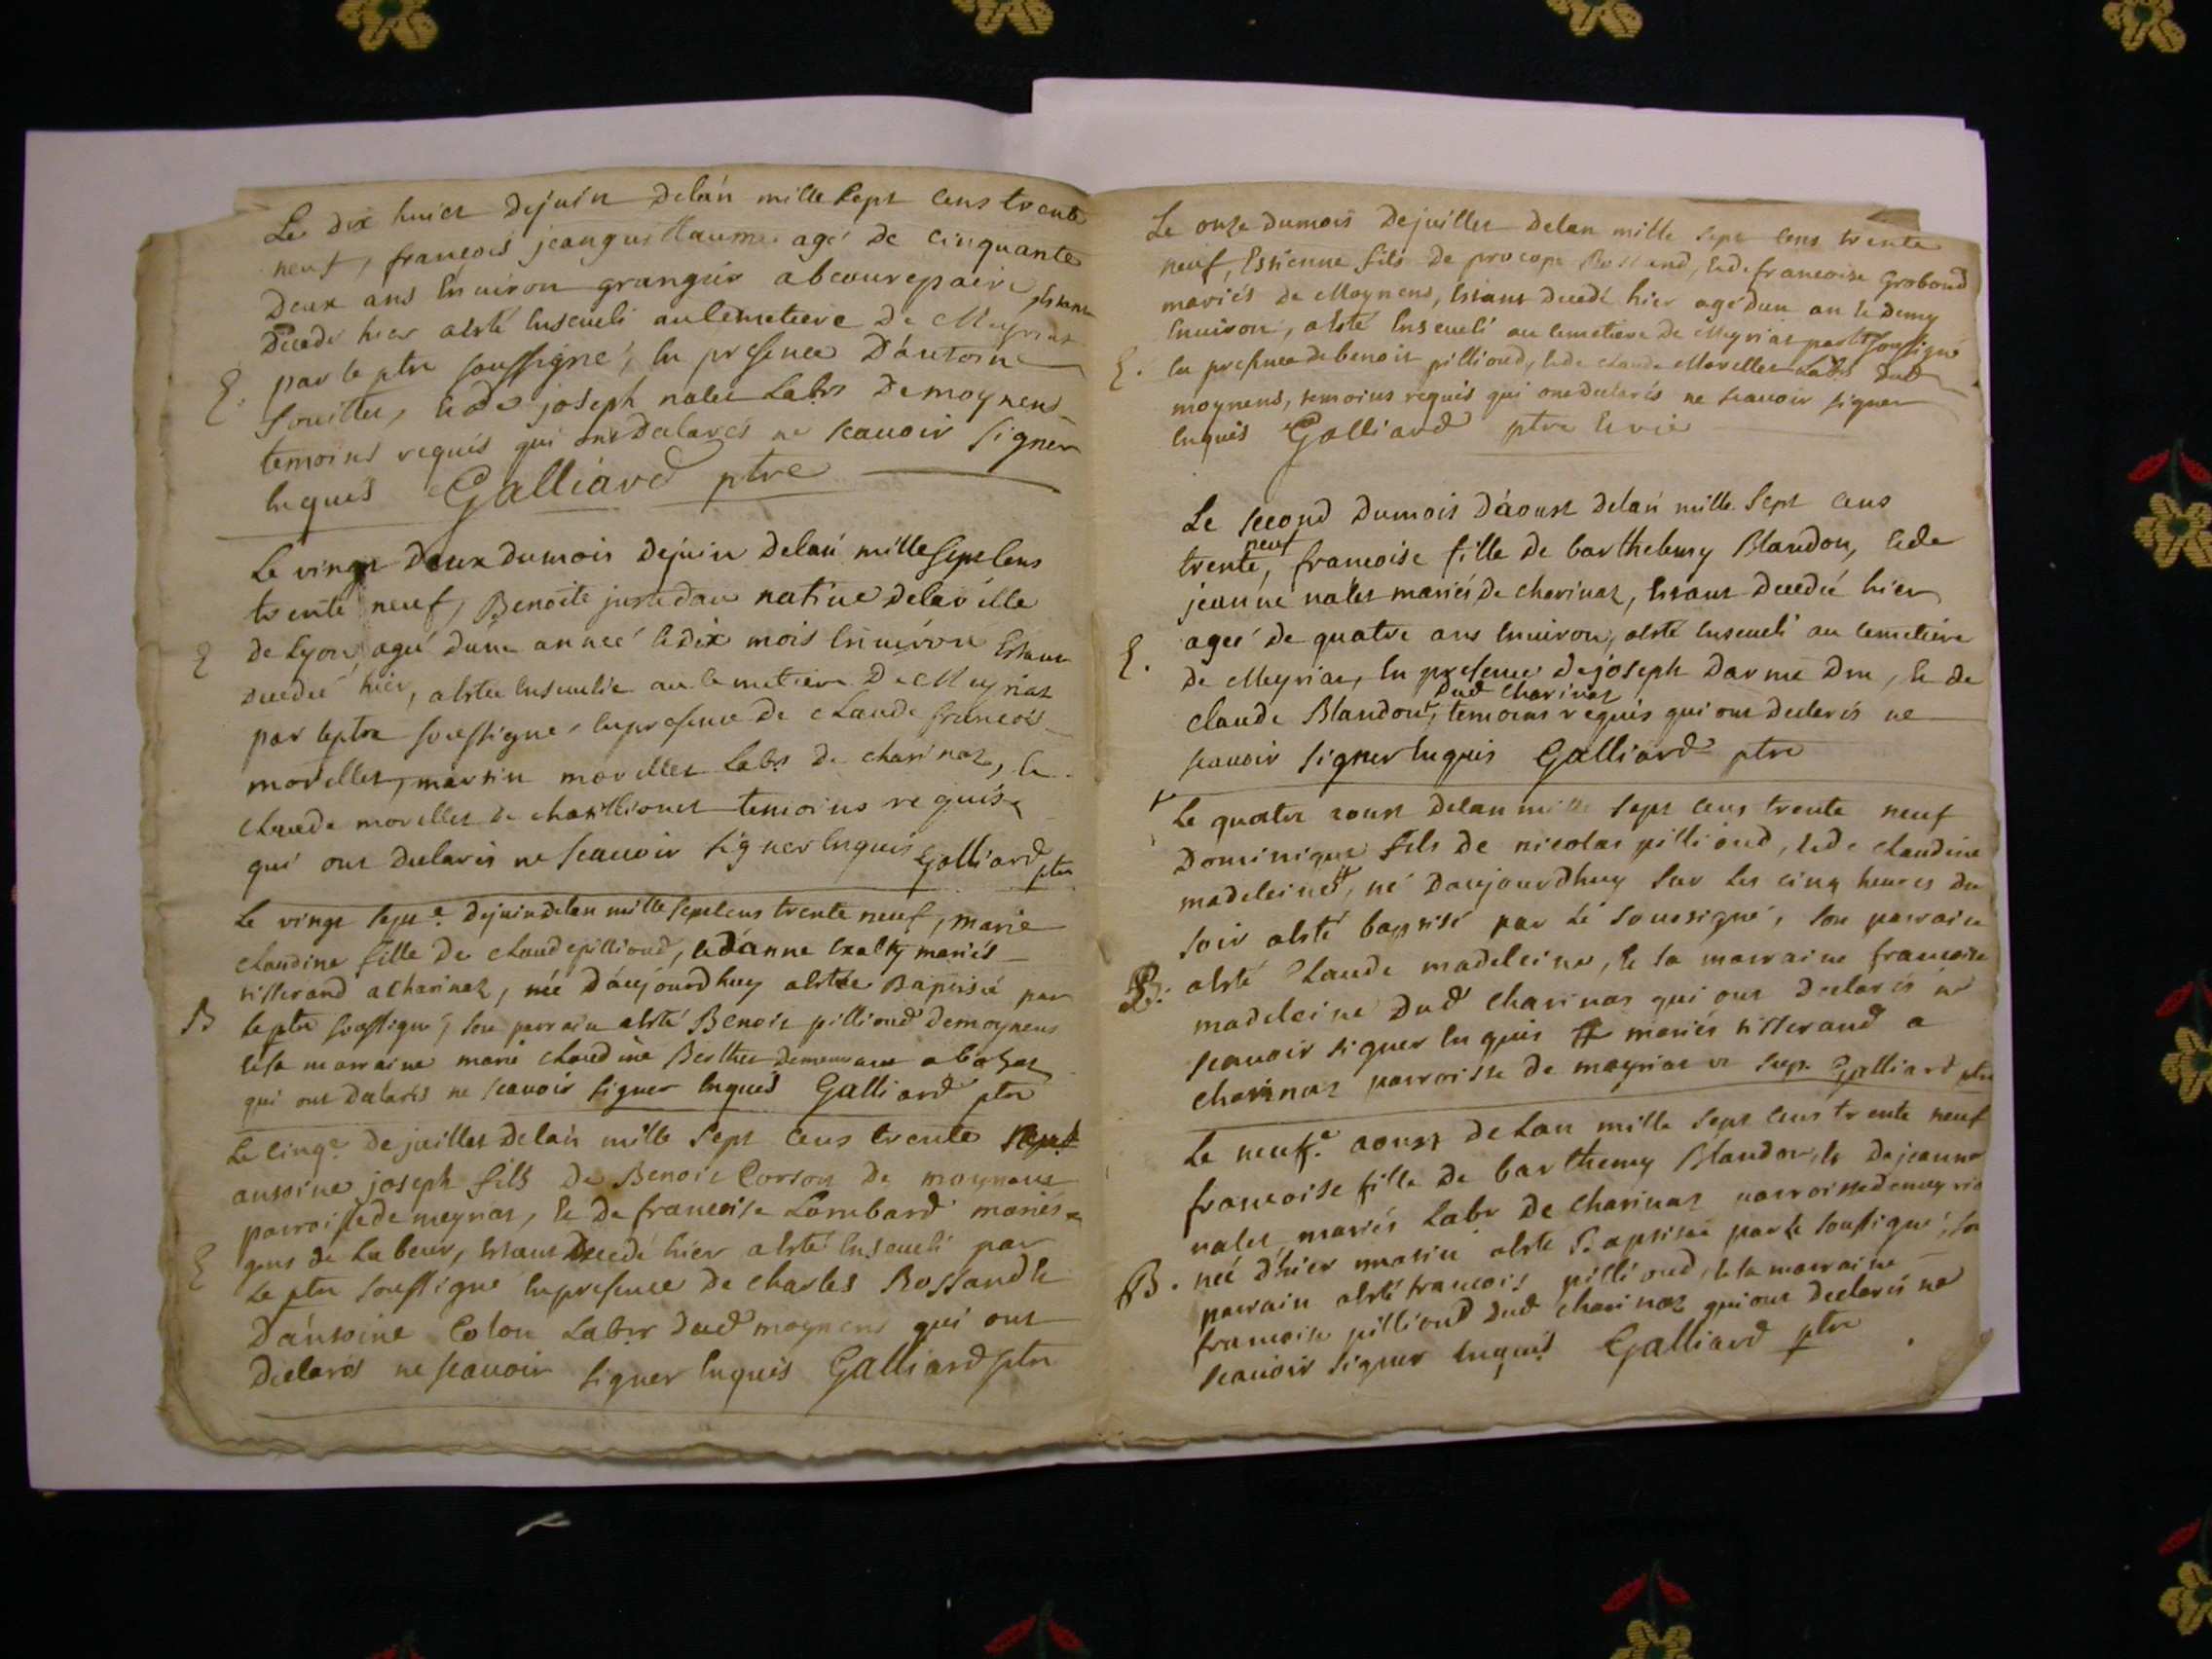 Le dix huict dejuin delan mille sept cens trente
neuf, françois jeanguillaume agé de cinquante
deux ans Enuiron granger abeaurepaire Estant
decedé hier aesté Enseueli aulemetiere de Meyriat
E. par le ptre soussigné, En presence d'antoine
Souillet, Ede joseph nalet Labrs demoynens
temoins requis qui ont declarés ne scauoir signer
Enquis Galliard ptre
Le vingt deux dumois dejuin delan mille sept cens
trente neuf, Benoite natiue delaville
E de Lyon, ageé dune anneé Edix mois Enuiron Estant
decedeé hier, aestée Enseuelie au cemetiere de Meyriat
par leptre soussigné, Enpresence de claude francois
morellet, martin morellet Labrs de charinaz, Et
claude morellet de temoins requis
qui ont declarés ne scauoir signer Enquis Galliard ptre
Le vingt sept.e dejuin delan mille septcens trente neuf, marie
claudine fille de claude pilliond, Ed'anne mariés
B leptre soussigné, son parrain aesté Benoit pilliond demoynens
Ela marraine marie claudine Berthet demeurant
qui ont declarés ne scauoir signer Enquis Galliard ptre
Le cinq.e dejuillet delan mille sept cens trente
antoine joseph fils de Benoit Corson de moynens
parroisse de meyriat, Et de francoise Lombard mariés
E gens de Labeur, Estant decedé hier aesté Enseueli par
Le ptre soussigné Enpresence de charles Rossand Et
d'antoine Colon Labrs dud moynens qui ont
declarés ne scauoir signer Enquis Galliard ptre
Le onze dumois dejuillet delan mille sept cens trente
neuf, Estienne fils de procope Rossand, Ede francoise Grobond
mariés de Moynens, Estant decedé hier agé dun an Et demy
Enuiron, aesté Enseueli au cemetiere de Meyriat par le soussigné
E. En presence debenoit pilliond, Ede claude Morellet Labrs dud
moynens, temoins requis qui ont declarés ne scauoir signer
Enquis Galliard ptre
Le second dumois d'aoust delan mille sept cens
trente neuf, francoise fille de barthelemy Blandon, Ede
jeanne nalet mariés de charinaz, Estant decedée hier
E. ageé de quatre ans Enuiron, aesté Enseueli au cemetiere
de Meyriat, En presence dejoseph darme , Et de
dud charinaz
claude Blandon, temoins requis qui ont declarés ne
scauoir signer Enquis Galliard ptre
Le quatre aoust delan mille sept cens trente neuf
dominique fils de nicolas pilliond, Ede claudine
madeleine, né daujourdhuy sur les cinq heures du
soir aesté baptisé par Le soussigné, son parrain
B. aesté Claude madeleine, Et sa marraine francoise
madeleine dud charinaz qui ont declarés ne
scauoir signer Enquis # mariés a
charinaz parroisse de mayriat Galliard ptre
Le neuf.e aoust delan mille sept cens trente neuf
francoise fille de barthemy Blandon, Et dejeanne
nalet mariés Labr de charinaz parroisse demeyriat
B. neé d'hier matin aesté Baptiseé par le soussigné, son
parrain aesté francois pilliond, Ela marraine
francoise pilliond dud charinaz qui ont declarés ne
scauoir signer Enquis Galliard ptre